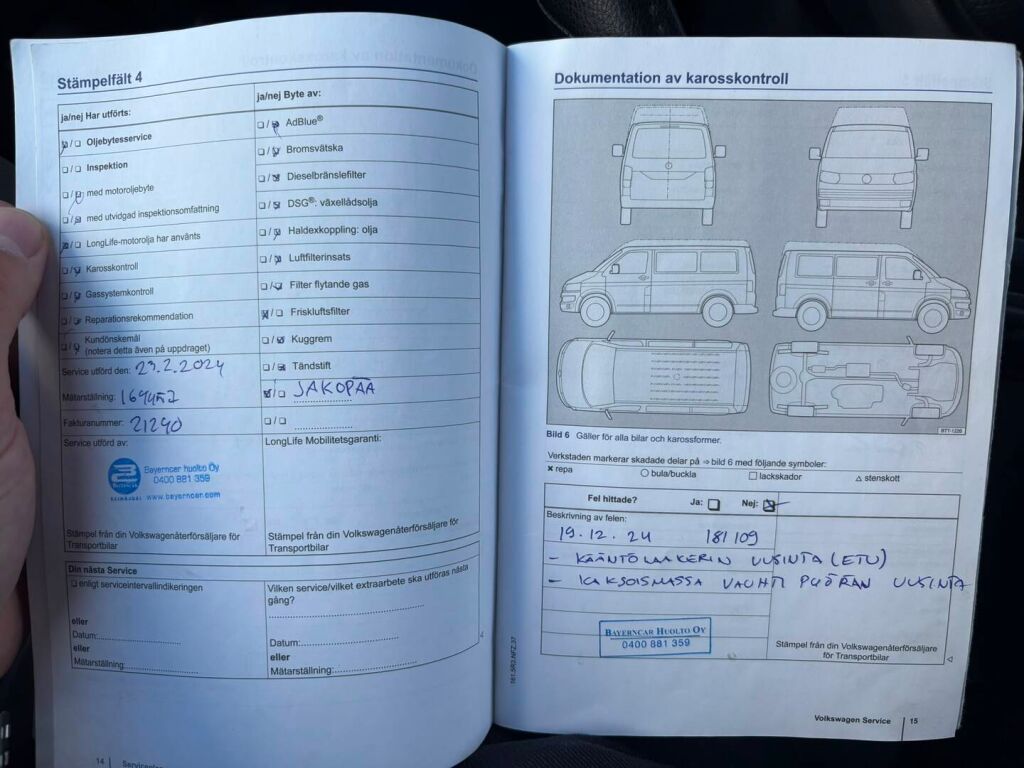 Stämpelfält 4
ja/nej Har utförts:
Oljebytesservice
Inspektion
med motoroljebyte
med utvidgad inspektionsomfattning
LongLife-motorolja har använts
Karosskontroll
Gassystemkontroll
Reparationsrekommendation
Kundönskemål
(notera detta även på uppdraget)
Service utförd den: 23.2.2024
Mätarställning:
Fakturanummer: 21290
Service utförd av:
Bayerncar huolto Oy
0400 881 359
BAYERNCAR
SEINÄJOKI www.bayerncar.com
Stämpel från din Volkswagenåterförsäljare för
Transportbilar
ja/nej Byte av:
AdBlue®
Bromsvätska
Dieselbränslefilter
DSG®: växellådsolja
Haldexkoppling: olja
Luftfilterinsats
Filter flytande gas
Friskluftsfilter
Kuggrem
Tändstift
JAKOPÄÄ
LongLife Mobilitetsgaranti:
Stämpel från din Volkswagenåterförsäljare för
Transportbilar
Din nästa Service
enligt serviceintervallindikeringen
eller
Datum:
eller
Mätarställning:
Vilken service/vilket extraarbete ska utföras nästa
gång?
Datum:
eller
Mätarställning:
14
Dokumentation av karosskontroll
BTT-1226
Bild 6 Gäller för alla bilar och karossformer.
Verkstaden markerar skadade delar på ⇒ bild 6 med följande symboler:
× repa ○ bula/buckla □ lackskador △ stenskott
Fel hittade? Ja: Nej:
Beskrivning av felen:
19.12.24 181109
- KÄÄNTÖLAAKERIN UUSINTA (ETU)
- KAKSOISMASSA VAUHTI PYÖRÄN UUSINTA
BAYERNCAR HUOLTO OY
0400 881 359
Stämpel från din Volkswagenåterförsäljare
för Transportbilar
161.5R3.NFZ.37
Volkswagen Service 15